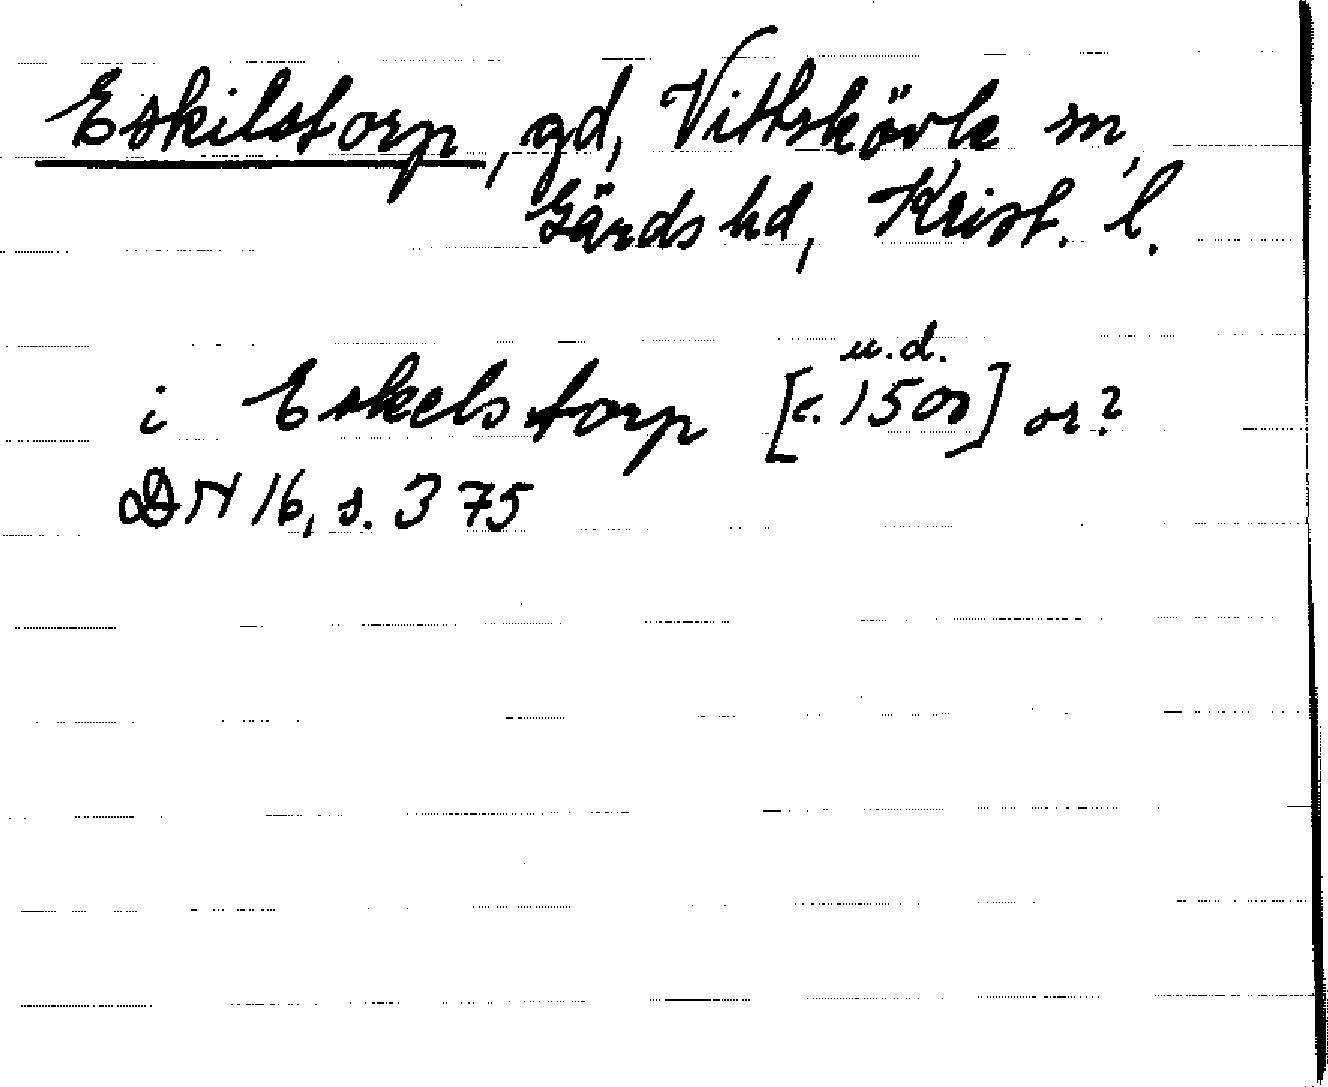 Eskilstorp, gd, Vittskövle sn,
Gärds hd, Krist. l.
u.d.
i Eskelstorp [c. 1500] or?
DN 16, s. 375